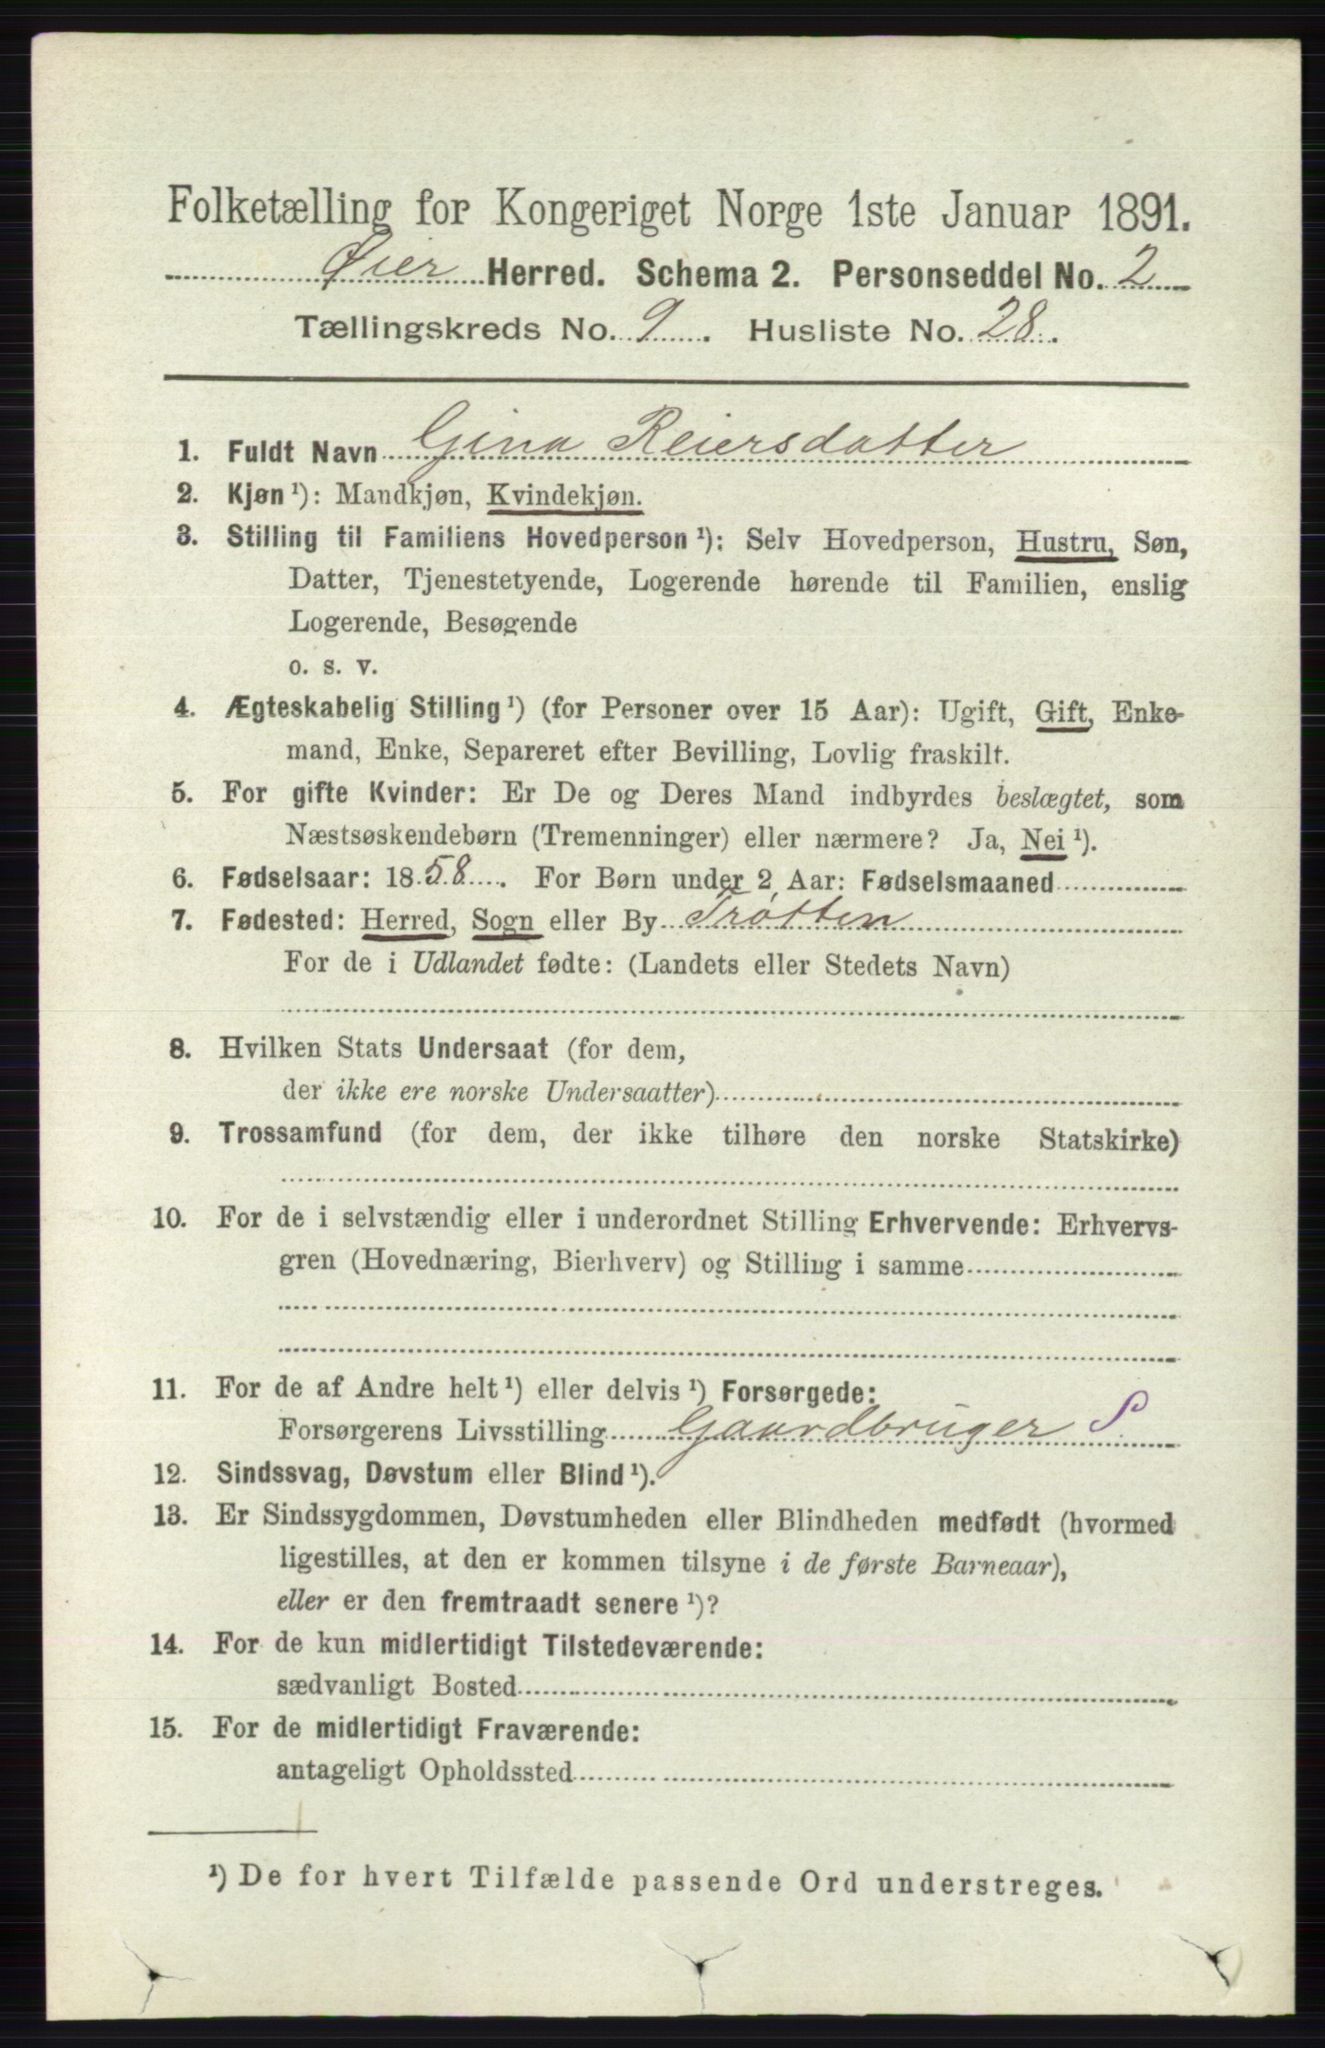 Folketælling for Kongeriget Norge 1ste Januar 1891.
Øier Herred. Schema 2. Personseddel No. 2
Tællingskreds No. 9. Husliste No. 28.
1. Fuldt Navn Gina Reiersdatter
2. Kjøn ¹): Mandkjøn, Kvindekjøn.
3. Stilling til Familiens Hovedperson ¹): Selv Hovedperson, Hustru, Søn,
Datter, Tjenestetyende, Logerende hørende til Familien, enslig
Logerende, Besøgende
o. s. v.
4. Ægteskabelig Stilling ¹) (for Personer over 15 Aar): Ugift, Gift, Enke-
mand, Enke, Separeret efter Bevilling, Lovlig fraskilt.
5. For gifte Kvinder: Er De og Deres Mand indbyrdes beslægtet, som
Næstsøskendebørn (Tremenninger) eller nærmere? Ja, Nei ¹).
6. Fødselsaar: 1858. For Børn under 2 Aar: Fødselsmaaned
7. Fødested: Herred, Sogn eller By Trøtten
For de i Udlandet fødte: (Landets eller Stedets Navn)
8. Hvilken Stats Undersaat (for dem,
der ikke ere norske Undersaatter)
9. Trossamfund (for dem, der ikke tilhøre den norske Statskirke)
10. For de i selvstændig eller i underordnet Stilling Erhvervende: Erhvervs-
gren (Hovednæring, Bierhverv) og Stilling i samme
11. For de af Andre helt ¹) eller delvis ¹) Forsørgede:
Forsørgerens Livsstilling Gaardbruger S
12. Sindssvag, Døvstum eller Blind ¹).
13. Er Sindssygdommen, Døvstumheden eller Blindheden medfødt (hvormed
ligestilles, at den er kommen tilsyne i de første Barneaar),
eller er den fremtraadt senere ¹)?
14. For de kun midlertidigt Tilstedeværende:
sædvanligt Bosted
15. For de midlertidigt Fraværende:
antageligt Opholdssted
¹) De for hvert Tilfælde passende Ord understreges.